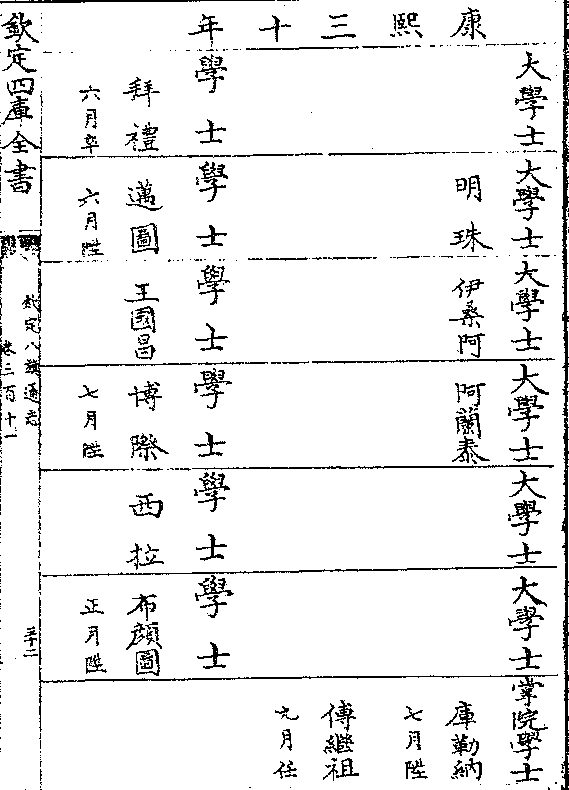 康熙三十年
大學士
大學士
明珠
大學士
伊桑阿
大學士
阿蘭泰
大學士
大學士
掌院學士
庫勒納
七月陞
傅繼祖
九月任
學士
拜禮
六月卒
學士
邁圖
六月陞
學士
王國昌
學士
博際
七月陞
學士
西拉
學士
布顔圖
正月陞
欽定四庫全書
欽定八旗通志
卷三百十一